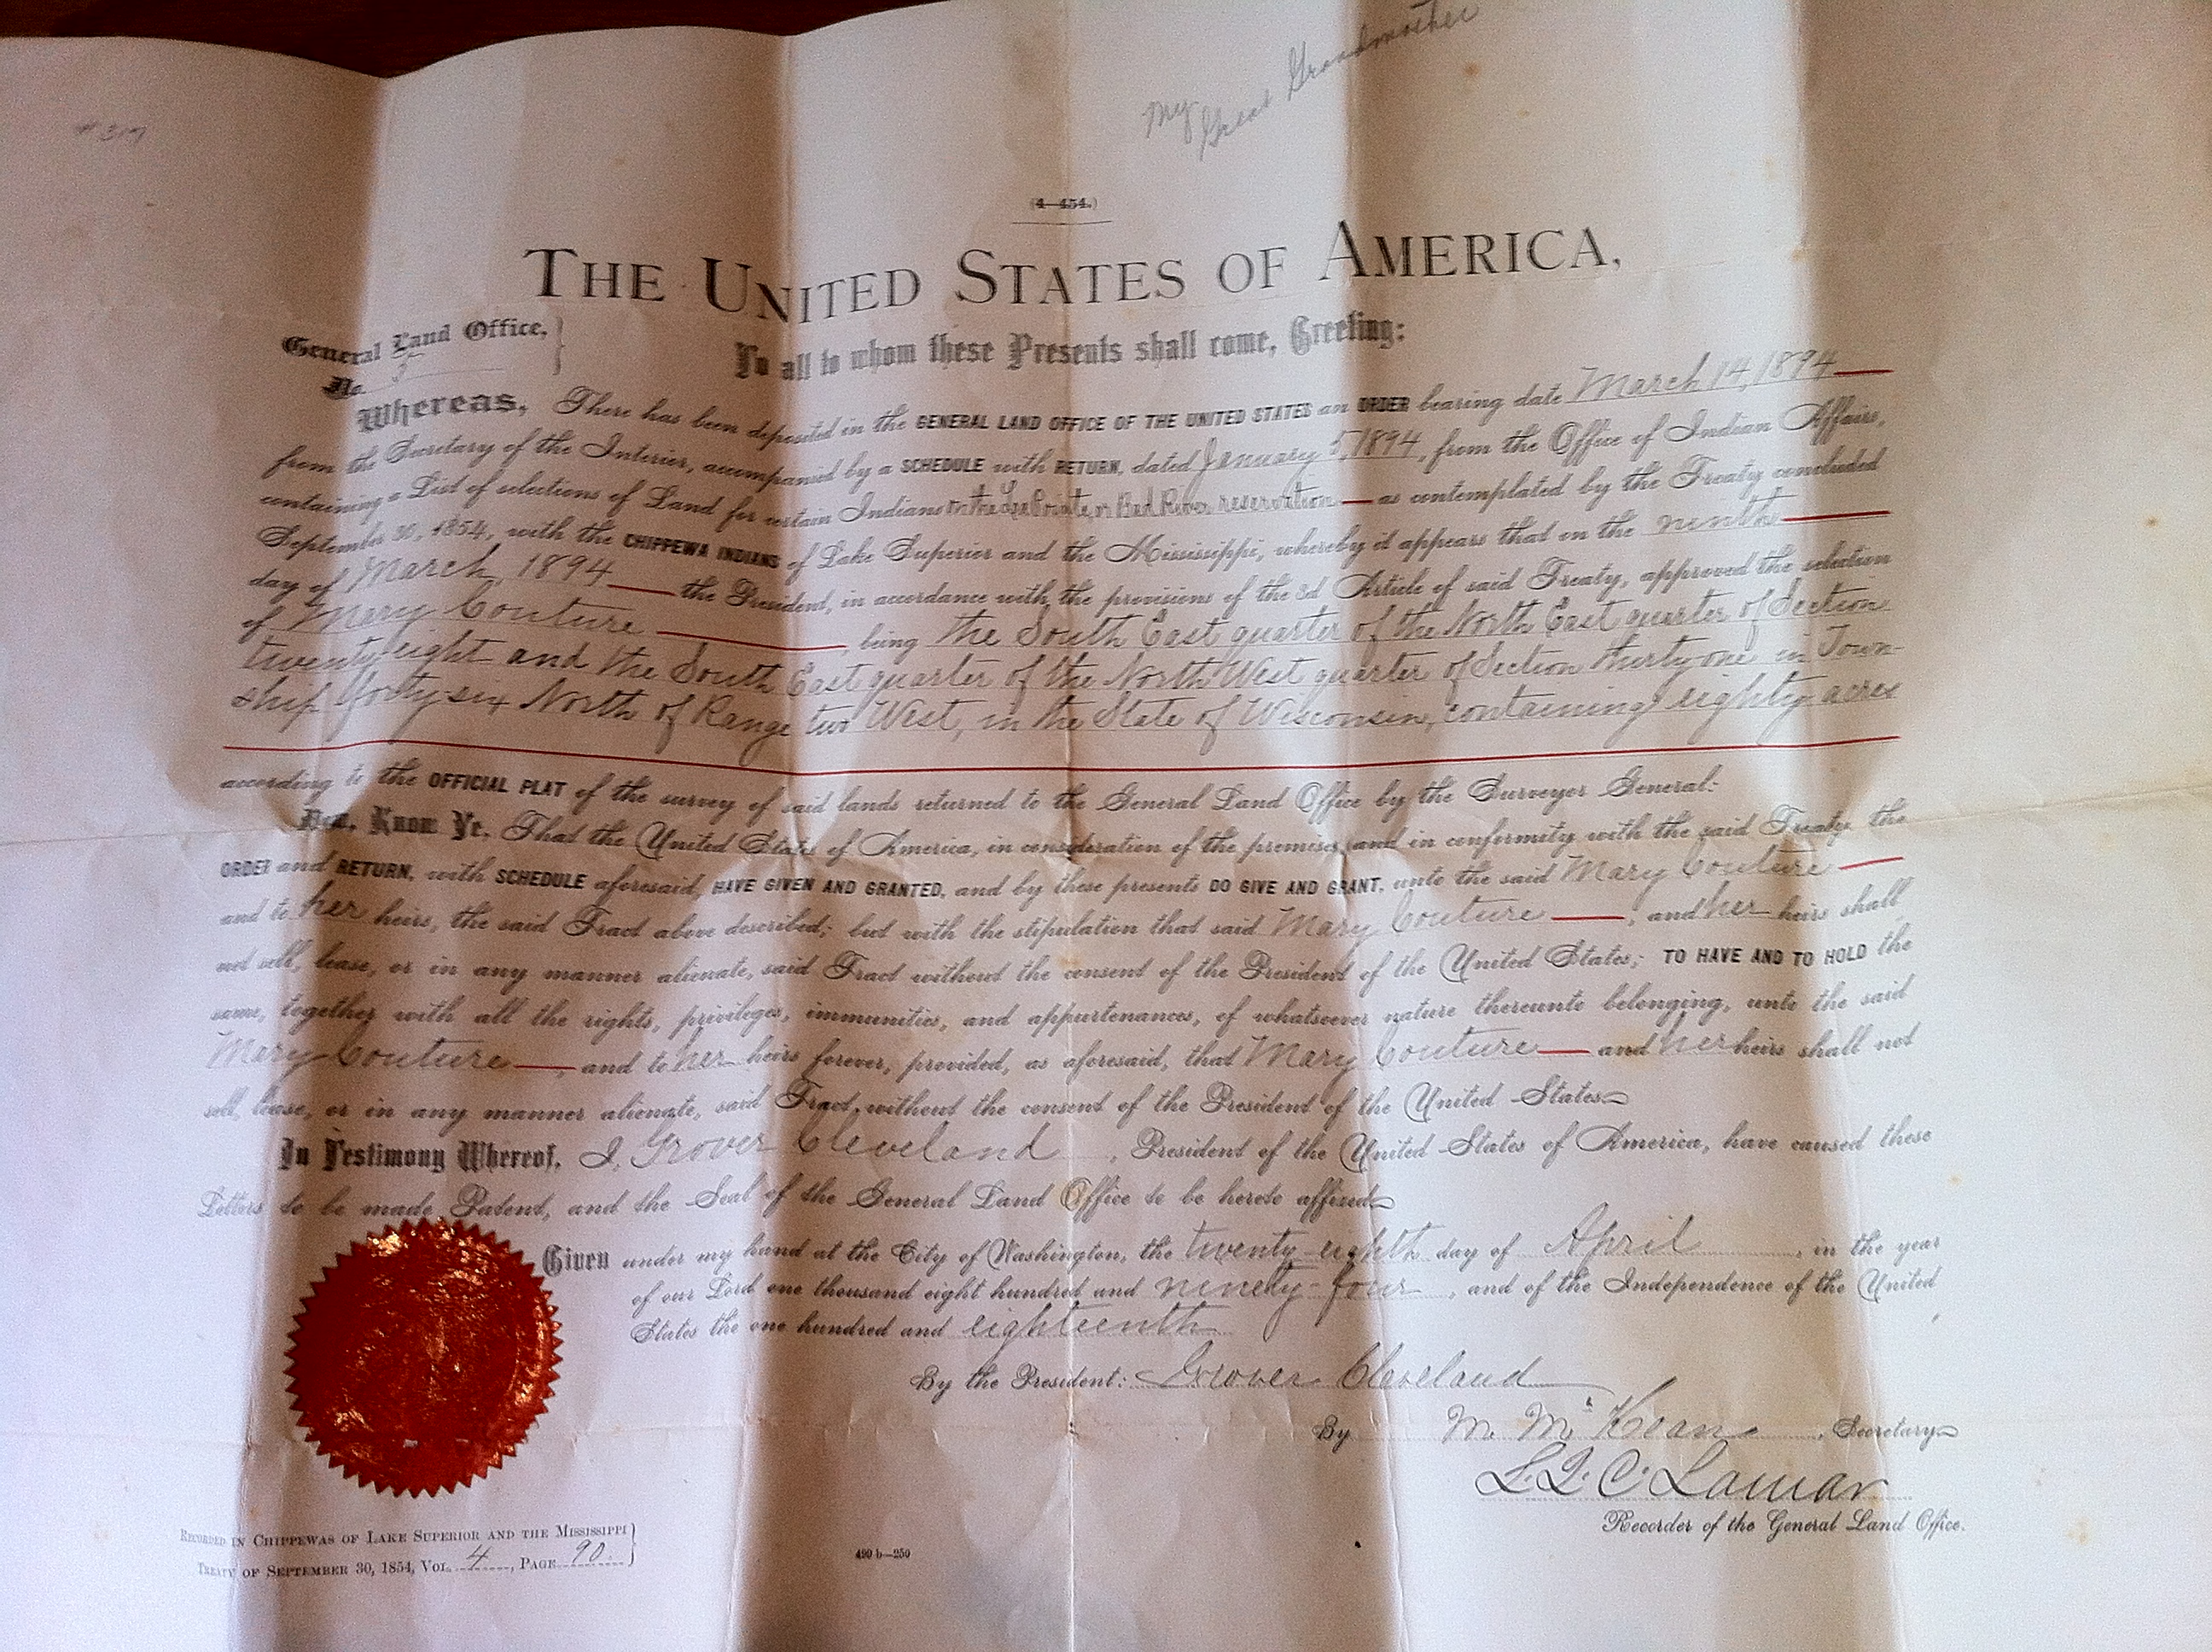 My
Great Grandmother
(4—454.)
THE UNITED STATES OF AMERICA,
General Land Office,
No.
To all to whom these Presents shall come, Greeting:
Whereas, There has been deposited in the GENERAL LAND OFFICE OF THE UNITED STATES an ORDER bearing date March 14, 1894
from the Secretary of the Interior, accompanied by a SCHEDULE with RETURN, dated January 5, 1894, from the Office of Indian Affairs,
containing a List of selections of Land for certain Indians on the La Pointe or Bad River reservation — as contemplated by the Treaty concluded
September 30, 1854, with the CHIPPEWA INDIANS of Lake Superior and the Mississippi, whereby it appears that on the ninth
day of March, 1894 the President, in accordance with the provisions of the 3d Article of said Treaty, approved the selection
of Mary Couture being the South East quarter of the North East quarter of Section
twenty eight and the South East quarter of the North West quarter of Section thirty-one in Town-
ship forty-six North of Range two West, in the State of Wisconsin, containing eighty acres
according to the OFFICIAL PLAT of the survey of said lands returned to the General Land Office by the Surveyor General:
Now, Know Ye, That the United States of America, in consideration of the premises, and in conformity with the said Treaty, the
ORDER and RETURN, with SCHEDULE aforesaid, HAVE GIVEN AND GRANTED, and by these presents DO GIVE AND GRANT, unto the said Mary Couture
and to her heirs, the said Tract above described; but with the stipulation that said Mary Couture —, and her heirs shall
not sell, lease, or in any manner alienate, said Tract without the consent of the President of the United States; TO HAVE AND TO HOLD the
same, together with all the rights, privileges, immunities, and appurtenances, of whatsoever nature thereunto belonging, unto the said
Mary Couture —, and to her heirs forever, provided, as aforesaid, that Mary Couture — and her heirs shall not
sell, lease, or in any manner alienate, said Tract without the consent of the President of the United States.
In Testimony Whereof, I, Grover Cleveland, President of the United States of America, have caused these
Letters to be made Patent, and the Seal of the General Land Office to be hereto affixed.
Given under my hand at the City of Washington, the twenty-eighth day of April, in the year
of our Lord one thousand eight hundred and ninety-four, and of the Independence of the United
States the one hundred and eighteenth
By the President: Grover Cleveland
By M. McKean, Secretary.
L. Q. C. Lamar
Recorder of the General Land Office.
RECORDED IN CHIPPEWAS OF LAKE SUPERIOR AND THE MISSISSIPPI
TREATY OF SEPTEMBER 30, 1854, VOL. 4, PAGE 90.
490 b—250